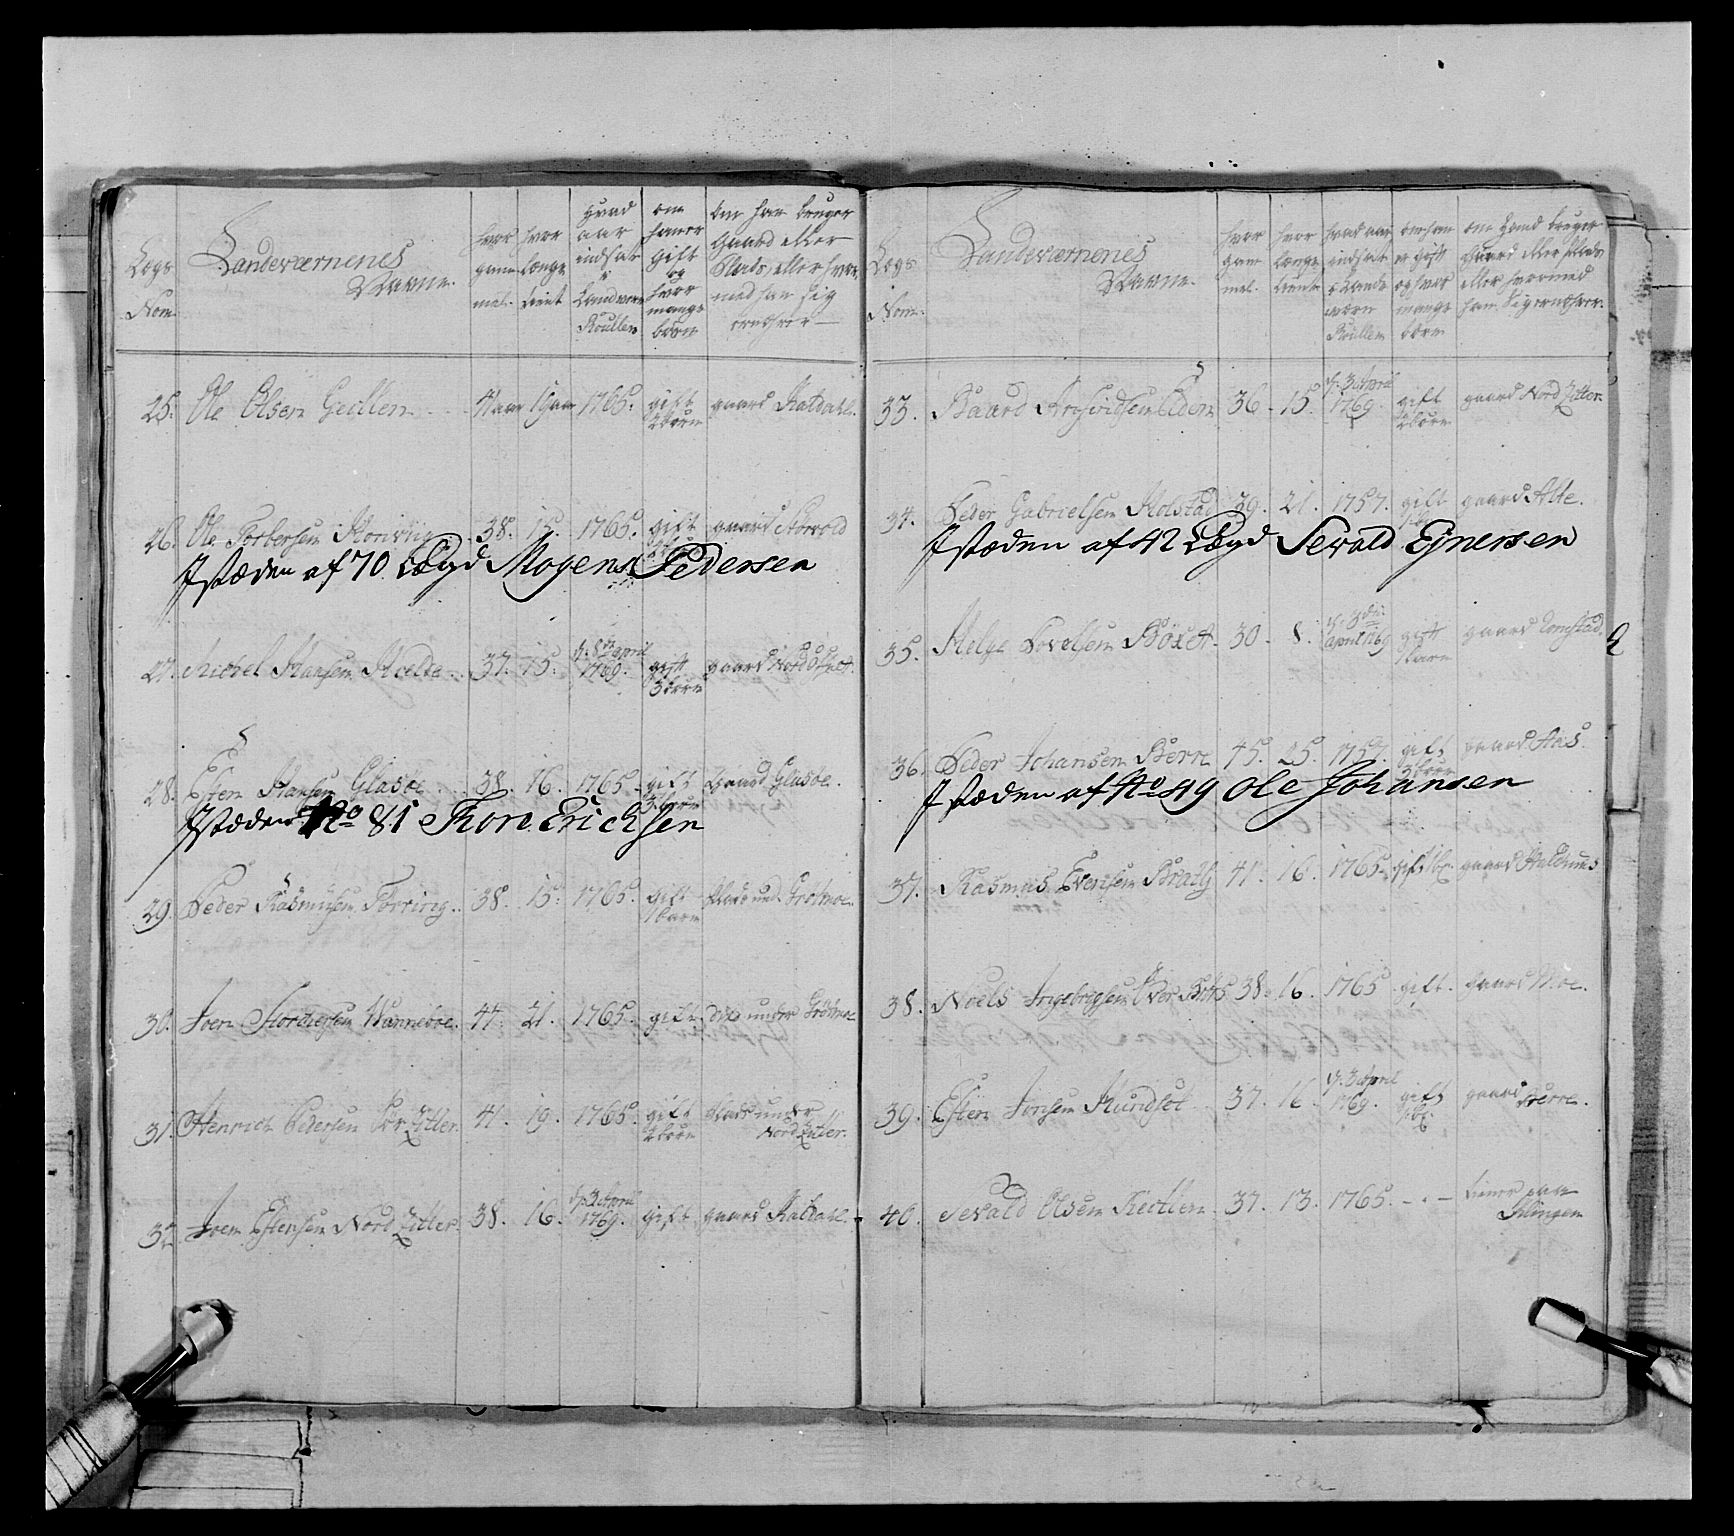 Legs Nom
Landeværnenes Navne.
hvor gammel.
hvor længe tient
Hvad aar indsat i Landvern Roullen
om han er gift og hvor mange børn
Om han bruger Gaard eller Plads, eller hvor med han sig ernærer
25. Ole Olsen Geillen 41 aar 19 aar 1765. gift 2 børn gaard Katdahl.
26. Ole Torbersen 38. 15. 1765. gift gaard
Jstæden af 70 Lægd Mogens Pedersen
27. Michel Hansen 37. 15. d. 8de april 1769. gift 3 børn gaard Nord
28. Esten Hansen Glasøe 38. 16. 1765. gift 3 børn Gaard Glasøe.
Jstæden No 81 Thore Erichsen
29. Peder Rasmusen Tørring. 38. 15. 1765. gift 1 barn Plads und.
30. Joen Wanneboe. 44. 21. 1765. gift. dito under
31. Henrich Pedersen Sør Zitter. 41. 19. 1765. gift 2 børn Plads under Nord Zitter.
32. Joen Estensen Nord Zitter. 38. 16. d. 3 April 1769. gift gaard Katdahl.
Legs Nom.
Landeværnenes Navne.
hvor gammel.
hvor længe tient
hvad aar indsat i Lande værn Rullen
om han er gift og hvor mange børn
om Hand bruger Gaard eller Plads eller hvormed han Sig ernærer.
33. Baard Elden 36. 15. d. 3 April 1769. gift 2 børn gaard Nord Zitter
34. Peder Gabrielsen Holstad 39. 21. 1757. gift gaard Alte.
Jstæden af 42 Lægd Sevald Ejnersen
35. Helge 30. 8. d. 3die april 1769 gift 1 barn gaard Romstad.
36. Peder Johansen Berre 45. 25. 1757. gift 3 børn gaard Aas.
Jstæden af No 49 Ole Johansen
37. Rasmus Evensen 41. 16. 1765. gift gaard
38. Noels Ingebrigtsen Over 38. 16. 1765 gift. gaard Moe.
39. Esten Jonsen 37. 16. d. 3 April 1769. gift gaard Berre.
40. Sevald Olsen 37. 13. 1765. - . - tiener paa